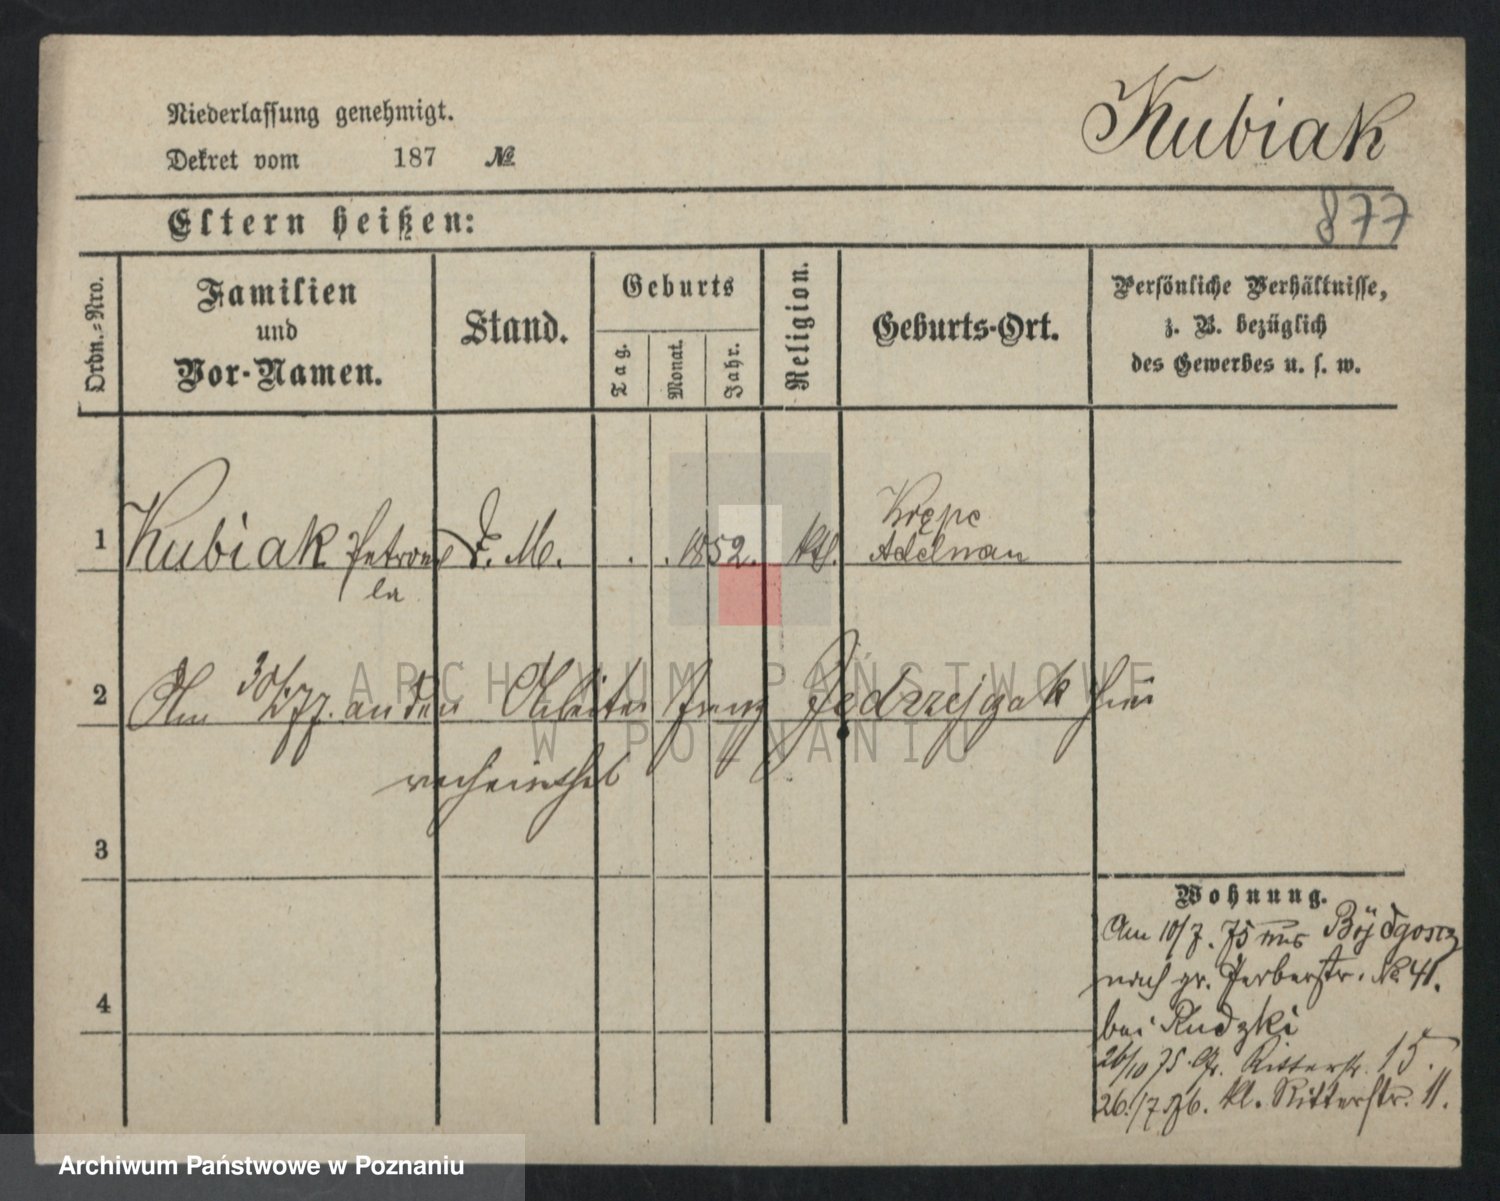 Niederlassung genehmigt.
Dekret vom 187 №
Kubiak
877
Eltern heißen:
Ordn.-Nro.
Familien
und
Vor-Namen.
Stand.
Geburts
Tag.
Monat.
Jahr.
Religion.
Geburts-Ort.
Persönliche Verhältnisse,
z. B. bezüglich
des Gewerbes u. s. w.
1 Kubiak Petronel D. M. . . 1852. kth. Krępe
la Adelnau
2 Am 30/ 77. an den Arbeiter Franz Jędrzejczak hier
verheirathet
3
4
Wohnung.
Am 10/7. 75 aus Bydgoszcz
nach gr. Gerberstr. No 41.
bei Rudzki
26/10 75. Gr. Ritterstr. 15.
26./7 76. kl. Ritterstr. 11.
ARCHIWUM PAŃSTWOWE
W POZNANIU
Archiwum Państwowe w Poznaniu